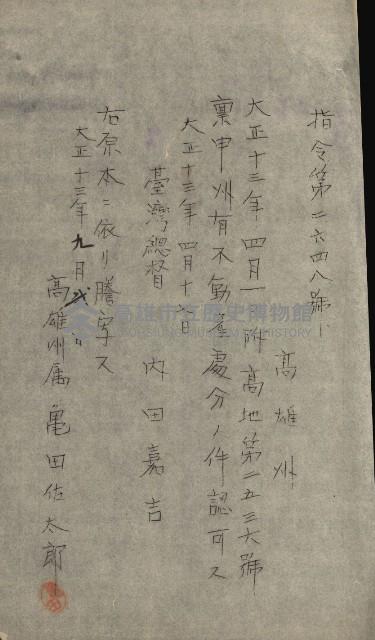 指令第二六四八號
高雄州
大正十三年四月一日附高地第二五三六號
稟申州有不動產處分ノ件認可ス
大正十三年四月十日
臺灣總督 內田嘉吉
右原本ニ依リ謄字ス
大正十三年九月弐日
高雄州屬 亀田佐太郎
高雄市立歷史博物館
KAOHSIUNG MUSEUM OF HISTORY